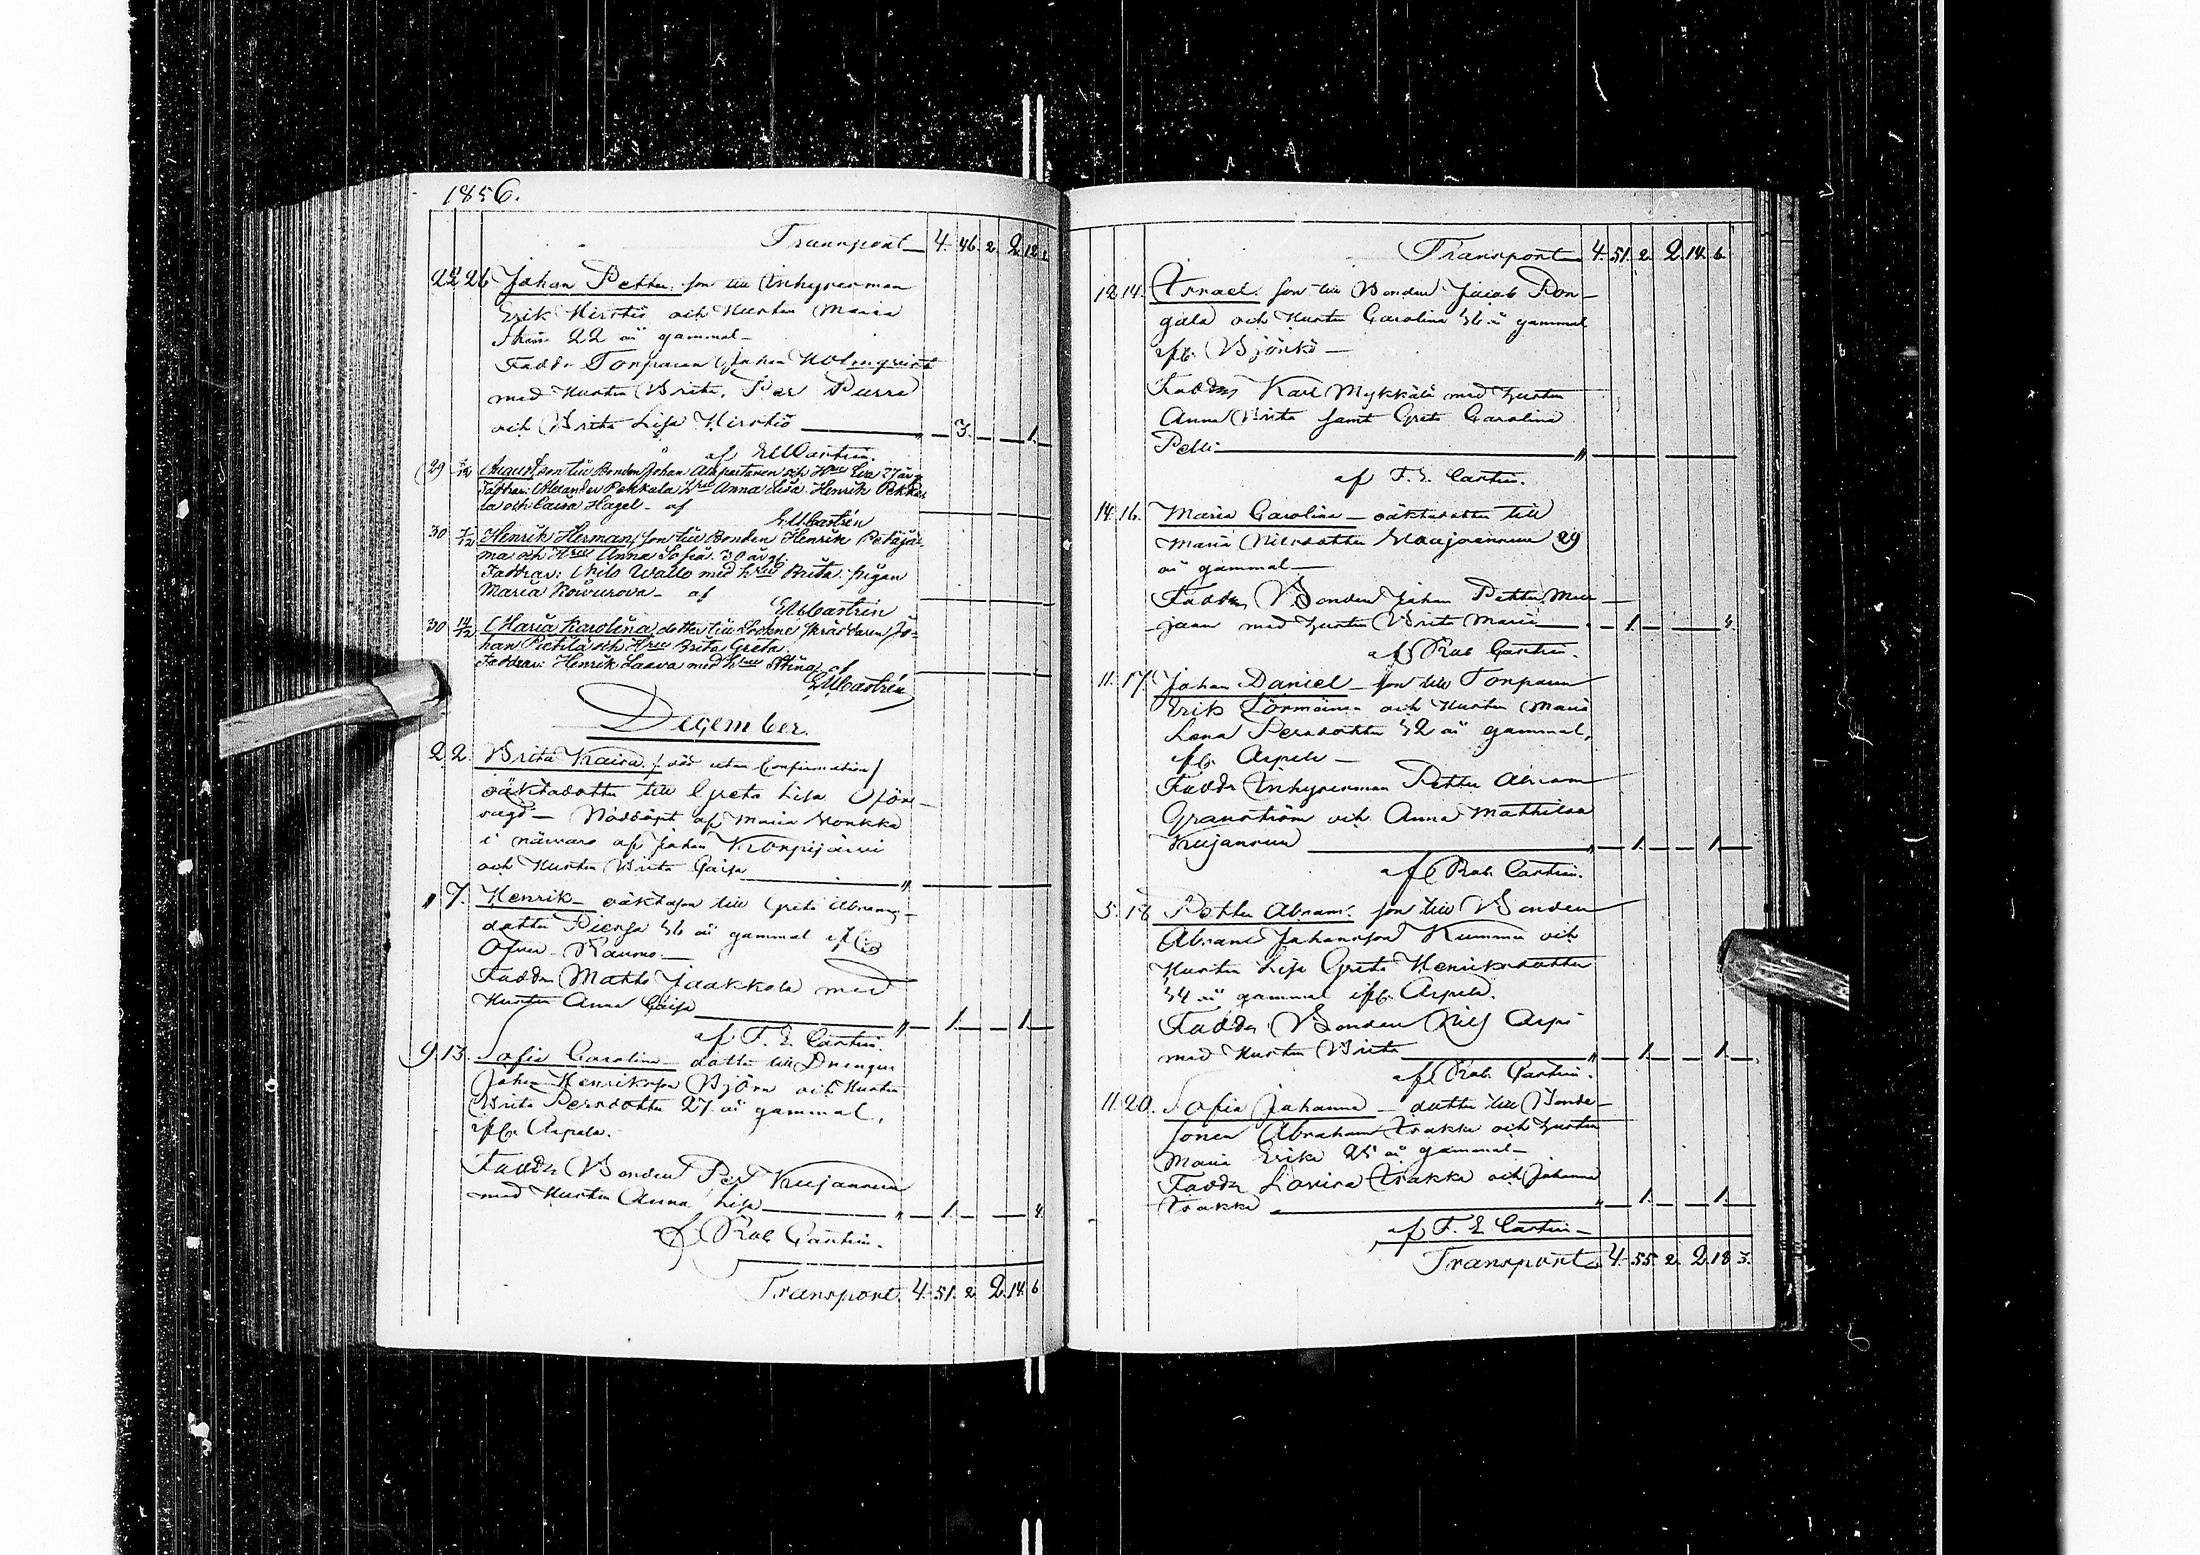 1856.
Transport 4. 46. 2. 2. 12. 2
22 26 Johan Petter. son till Inhysesman
Erik Hirstiö och Hustru Maria
Stina 22 år gammal
Faddr Torparen Johan Holmqvist
med Hustru Brita, Per Purra
och Brita Lisa Hirstiö 3. 1.
af EMCastrén.
29 7/12 August, son till Bonden Johan och Hru Eva 27 år g.
Faddrar: Alexander Pekkala hru Anna Lisa Henrik Pekka-
la och Caisa Hagel af
EMCastrén
30 7/12 Henrik Herman, son till Bonden Henrik Petäjä-
ma och Hru Anna Sofia. 30 år g.
Faddrar: Nils Wallo med hru Brita. pigan
Maria Kowurova af
EMCastrén
30 14/12 Maria Karolina, dotter till Sockne skräddaren Jo-
han Pietilä och Hru Brita Greta.
Faddrar: Henrik Laava med hru Stina af
EMCastrén
December.
2. 2. Brita Kaisa. / död utan Confirmation /
oäktadotter till Greta Lisa Sjöne-
vagd Nöddöpt af Maria Monkka
i närvaro af Johan Konpijärvi
och Hustru Brita Caisa
" 7. Henrik oäktason till Greta Abrams
dotter Piensa 36 år gammal ifr.
Öfver Raumo.
Faddr Matts Jaakkola med
Hustru Anna Caisa 1. 1.
af F. E. Castrén.
9. 13. Sofia Carolina dotter till Drengen
Johan Henriksson Björn och Hustru
Brita Persdotter 27 år gammal,
ifr. Arpela.
Faddr Bonden Per Kujannen
med Hustru Anna Lisa 1. 4.
af Rob Castrén.
Transport. 4. 51. 2. 2. 14. 6
Transport 4. 51. 2. 2. 14. 6
12. 14. Israel. son till Bonden Jacob Pon-
gala och Hustru Carolina 36 år gammal
ifr. Björkö
Faddr Karl Mykkälä med hustru
Anna Brita samt Greta Carolina
Pelli "
af F. E. Castrén.
14. 16. Maria Carolina oäktadotter till
Maria Nilsdotter 29
år gammal
Faddr Bonden Johan Petter
med hustru Brita Maria 1. 4.
af Rob Castrén.
11. 17. Johan Daniel son till Torparen
Erik Törmänen och Hustru Maria
Lena Persdotter 32 år gammal,
ifr. Arpela
Faddr Inhysesman Petter Abram
Granström och Anna Mathilda
Kujannen 1. 1.
af Rob. Castrén.
5. 18 Petter Abram. son till Bonden
Abram Johansson Kummu och
Hustru Lisa Greta Henriksdotter
34 år gammal ifr. Arpela.
Faddr Bonden Nils Arpi
med Hustru Brita 1. 1.
af Rob. Castrén.
11. 20. Sofia Johanna dotter till Bonde-
sonen Abraham Frakka och hustru
Maria Erika 25 år gammal
Faddr Lovisa Frakka och Johanna
Frakka 1. 1.
af F. E. Castrén
Transport 4. 55. 2. 2. 18 3.